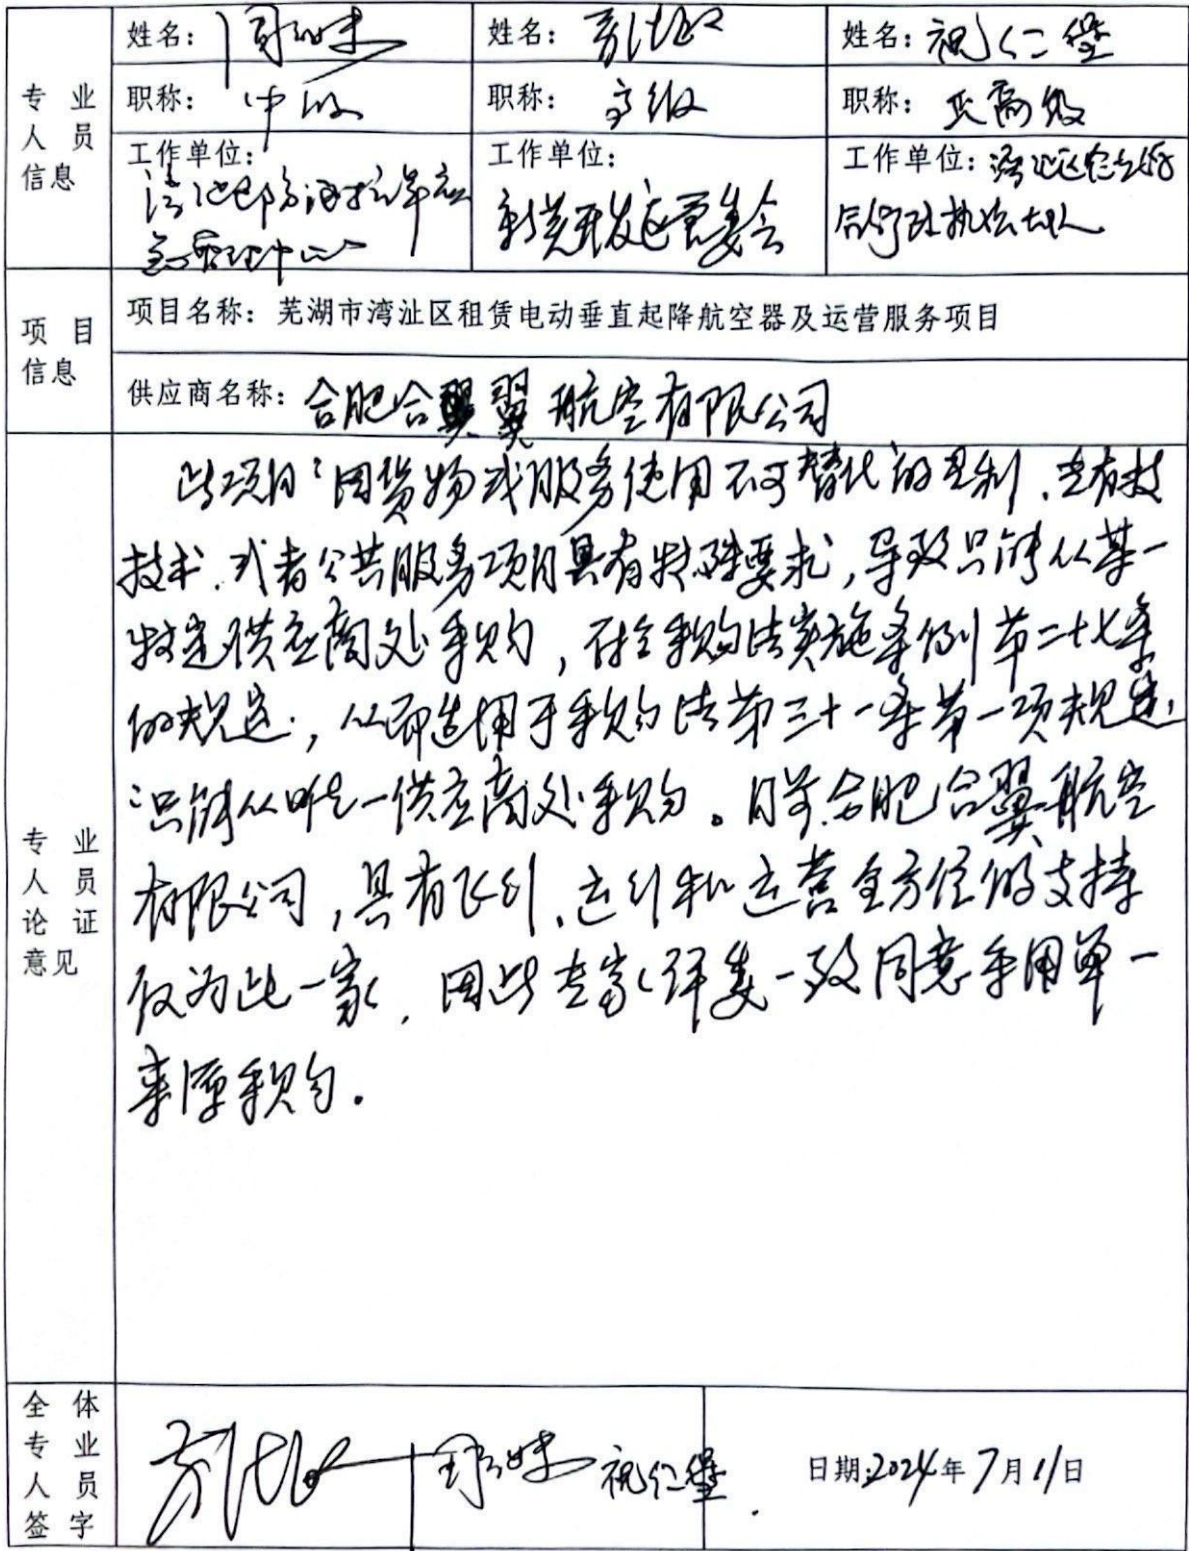 专业人员信息
姓名：
姓名：
姓名：祝仁堡
职称：中级
职称：高级
职称：正高级
工作单位：
中心
工作单位：
新芜开发区管委会
工作单位：湾沚区
行政执法大队
项目信息
项目名称：芜湖市湾沚区租赁电动垂直起降航空器及运营服务项目
供应商名称：合肥合翼航空有限公司
专业人员论证意见
此项目“因货物或服务使用不可替代的专利、专有技
技术、或者公共服务项目具有特殊要求，导致只能从某一
特定供应商处采购，符合采购法实施条例第二十七条
的规定，从而适用于采购法第三十一条第一项规定，
“只能从唯一供应商处采购。目前合肥合翼航空
有限公司，具有飞行、运行和运营全方位的支持
仅为此一家，因此专家评委一致同意采用单一
来源采购。
全体专业人员签字
祝仁堡
日期：2024年7月11日